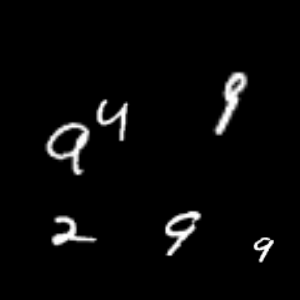 9 4 9
2 9 9